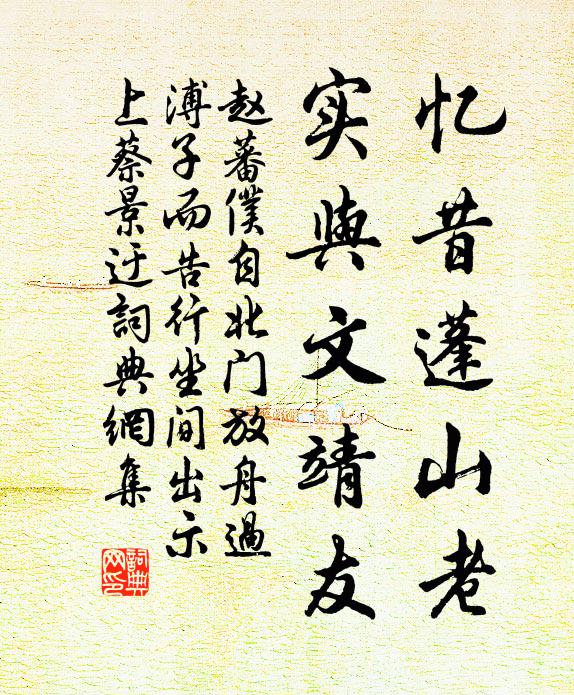 忆昔蓬山老
实与文靖友
赵蕃僕自北门放舟過
溥子而告行坐间出示
上蔡景迂詞典網集
詞典网印